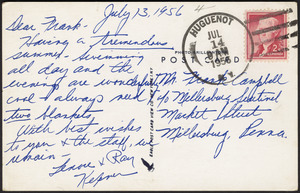 July 13, 1956
4
Dear Frank -
Having a tremendous
summer - swimming
all day and the
evenings are wonderful
cool - always need
two blankets.
With best wishes
to you & the staff, we
remain
Fennie & Ray
Kepner
HUGUENOT
JUL
14
AM
1956
N.Y.
POST CARD
2¢
Mr. Frank Campbell
c/o Millersburg Sentinel
Market Street
Millersburg
Penna.